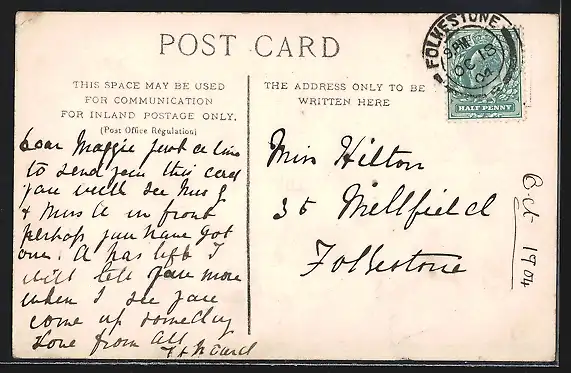 POST CARD
THIS SPACE MAY BE USED
FOR COMMUNICATION
FOR INLAND POSTAGE ONLY.
(Post Office Regulation)
THE ADDRESS ONLY TO BE
WRITTEN HERE
FOLKESTONE
8 PM
OC 18
04
HALF PENNY
Dear Maggie just a line
to send you this card
you will see Mrs G
& Mrs A in front
perhaps you have got
one. A has left I
will tell you more
when I see you
come up someday
love from all
Miss Hilton
35 Millfield
Folkestone
Oct 1904